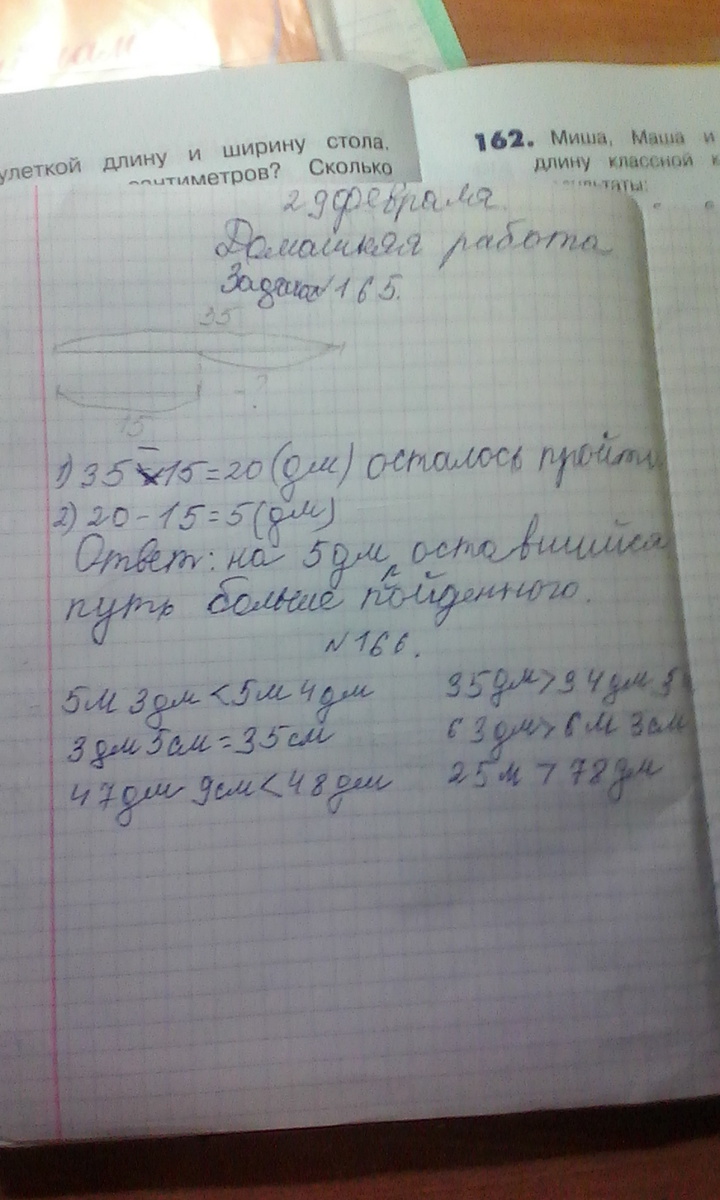 улеткой длину и ширину стола.
сантиметров? Сколько
162. Миша, Маша и
длину классной
29 февраля.
Домашняя работа
Задача №165.
35
-?
15
1) 35 - 15 = 20 (дм) осталось пройти
2) 20 - 15 = 5 (дм)
Ответ: на 5 дм оставшийся
путь больше пройденного.
№166.
5м 3дм < 5м 4дм
3 дм 5см = 35 см
47дм 9см < 48 дм
35дм > 34дм 5
63дм > 6м 3см
25м > 78 дм